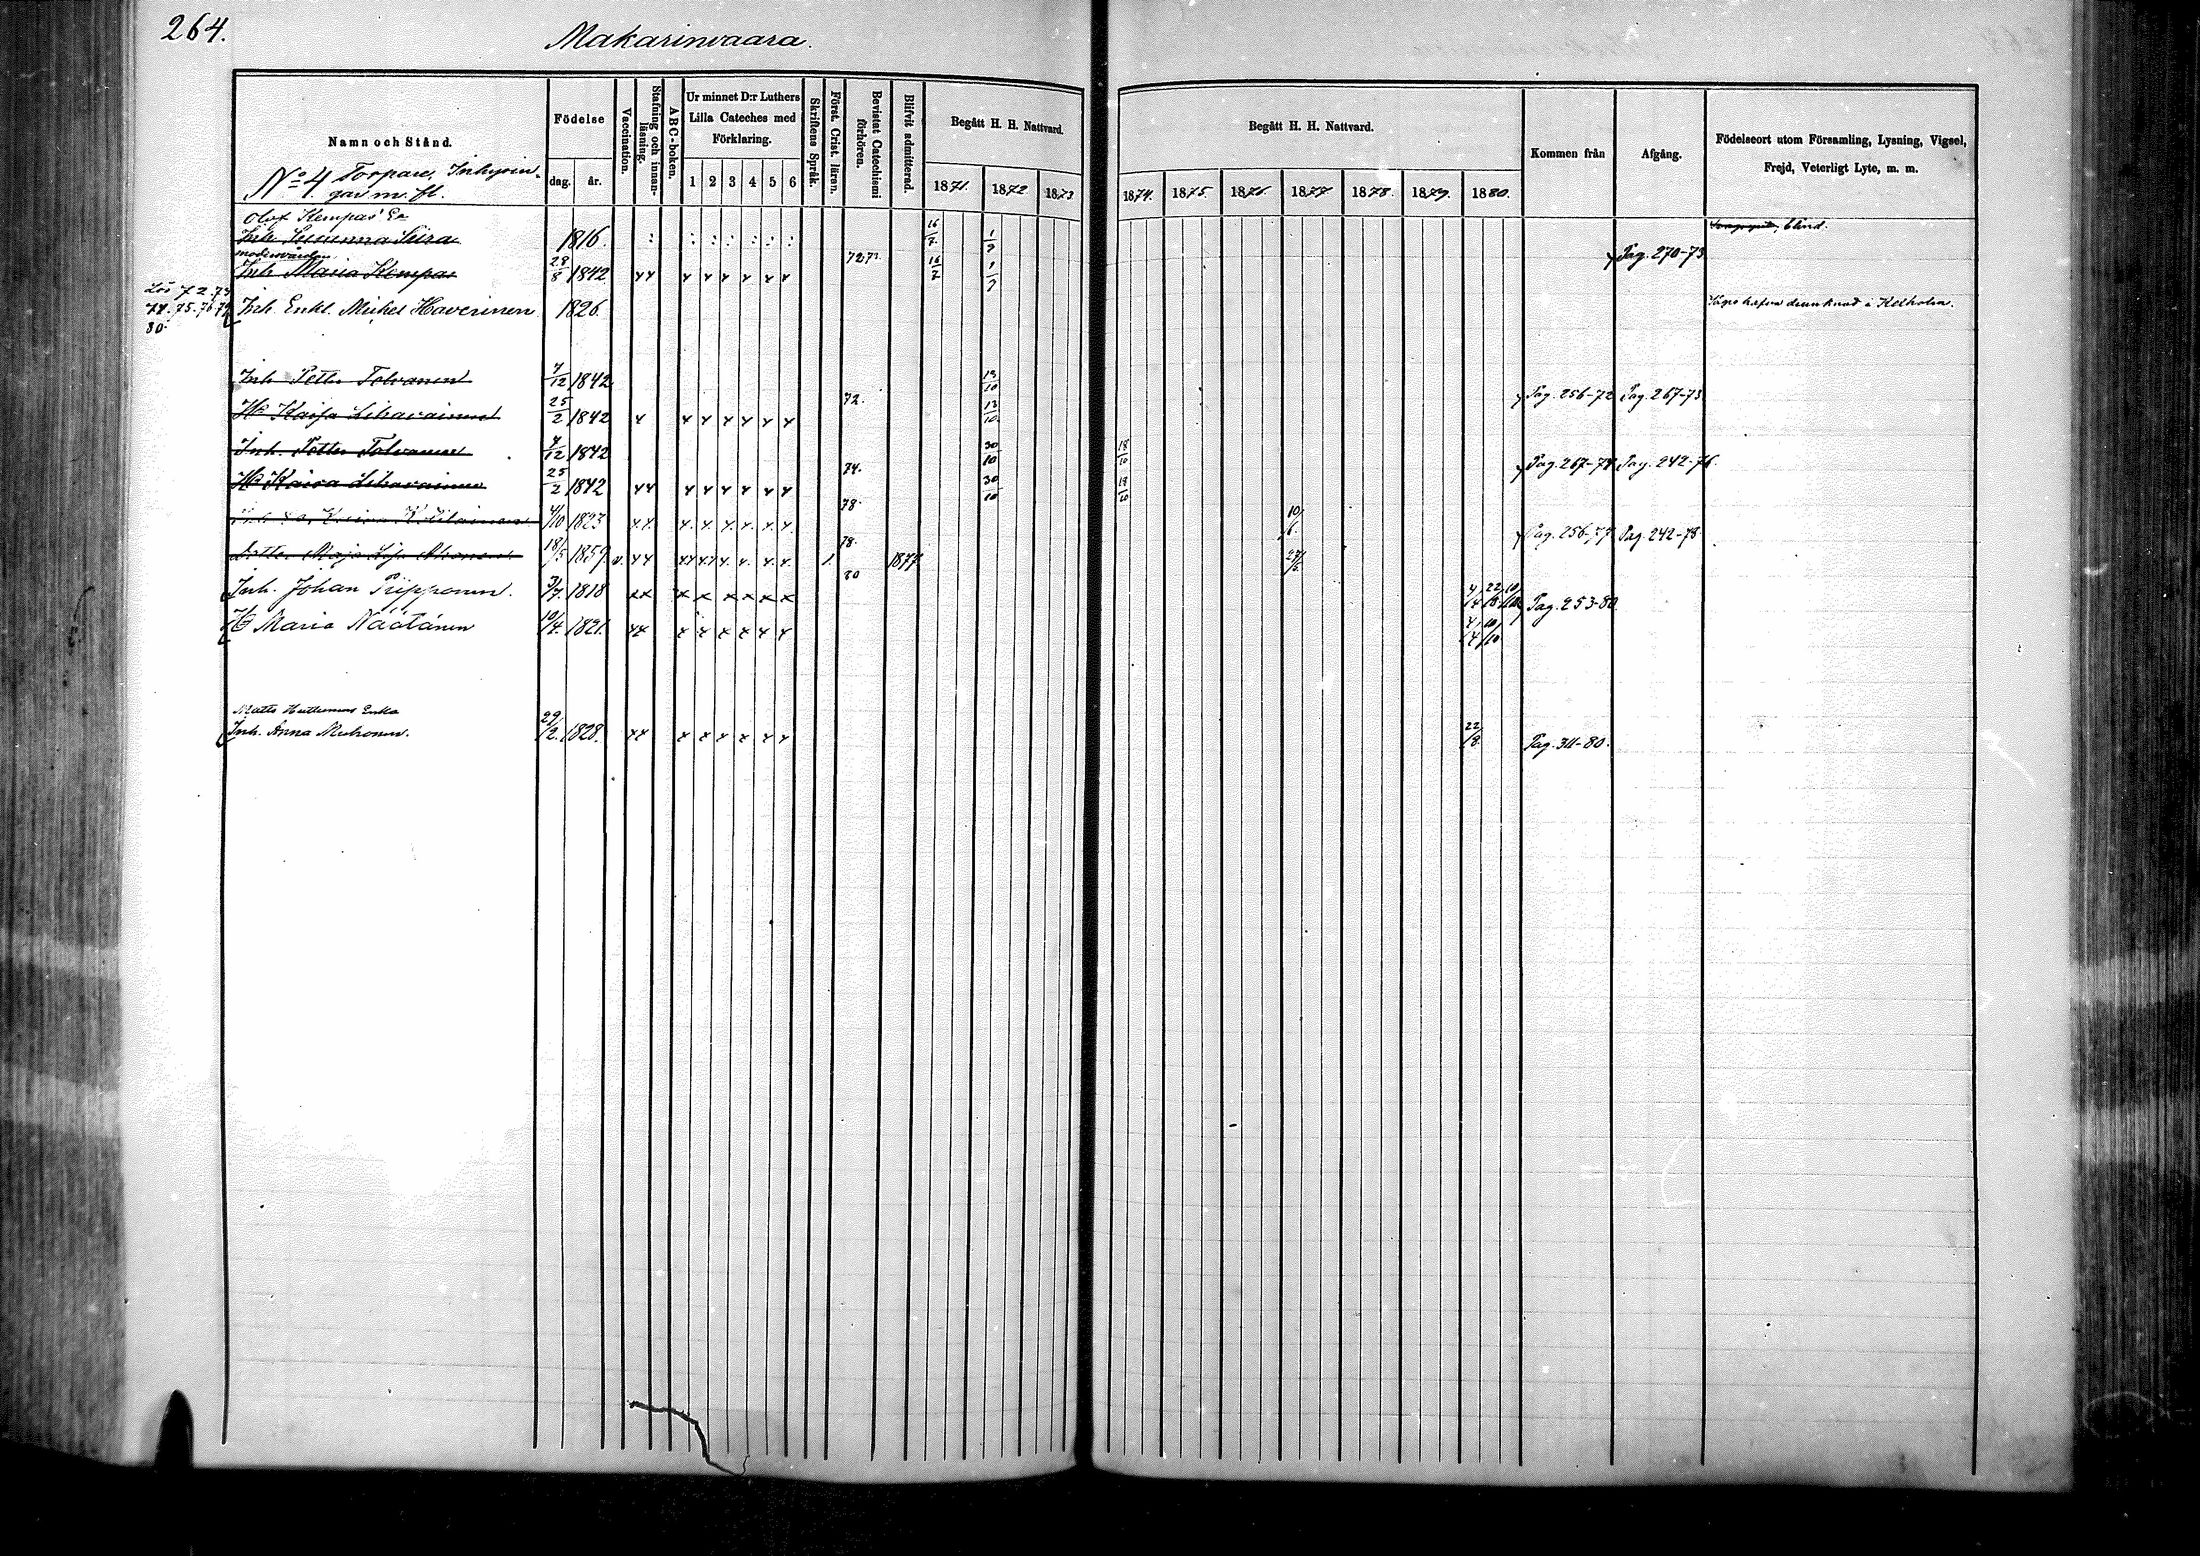 264.
Makarinvaara.
Namn och Stånd.
Födelse
dag. år.
Vaccination.
Stafning och innanläsning.
ABC-boken.
Ur minnet D:r Luthers
Lilla Cateches med
Förklaring.
1 2 3 4 5 6
Skriftens Språk.
Först. Crist. läran.
Bevistat Catechismi förhören.
Blifvit admitterad.
Begått H. H. Nattvard.
1871. 1872 1873
Begått H. H. Nattvard.
1874. 1875. 1876. 1877 1878. 1879. 1880.
Kommen från
Afgång.
Födelseort utom Församling, Lysning, Vigsel,
Frejd, Veterligt Lyte, m. m.
No 4 Torpare, Inhysin-
gar m. fl.
Olof Kempas' Ea
Inh. Susanna Siira 1816. : : : : : : : 16/7. 1/7 blind.
72.73. Pag. 270-73
Inh. Maria Kempas 28/8 1842 xx x x x x x x 16/7 1/7
72.73
74.75.76.79 Inh. Enkl. Michel Haverinen 1826.
80.
Inh. Petter Tolvanen 7/12 1842 13/10
72. Pag. 256-72 Pag. 267-73
Ha Kaisa Liharainen 25/2 1842 x x x x x x x 13/10.
Inh. Petter Tolvanen 7/12 1842 30/10 18/10
74. Pag. 267-74 Pag. 242-76.
Ha Kaisa Liharainen 25/2 1842 xx x x x x x x 30/10 18/10
78.
4/10 1823 x.x. x. x. x. x. x. x. 10/6.
78. Pag. 256-77 Pag. 242-78.
18/5 1859. v. xx xx xx x x. x. x. 1. 1877. 27/5.
80
Inh. Johan Piipponen. 3/7. 1818 xx x x x x x x Pag. 253-80
Ha Maria Näätänen 10/4. 1821. xx x x x x x x
Matts Huttunens Enka
Inh. Anna Muhonen. 29/2. 1828. xx x x x x x x 22/8. Pag. 311-80.